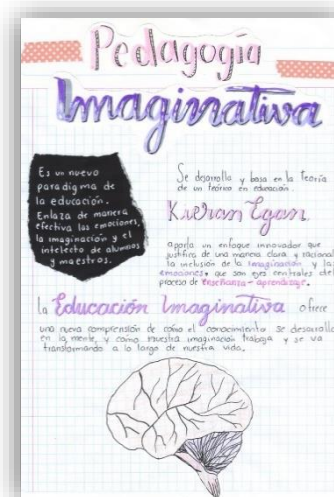 Pedagogía
Imaginativa
Es un nuevo
paradigma de
la educación.
Enlaza de manera
efectiva las emociones,
la imaginación y el
intelecto de alumnos
y maestros.
Se desarrolla y basa en la teoría
de un teórico en educación.
Kieran Egan
aporta un enfoque innovador que
justifica de una manera clara y racional
la inclusión de la imaginación y las
emociones, que son ejes centrales del
proceso de enseñanza - aprendizaje.
la Educación Imaginativa ofrece
una nueva comprensión de cómo el conocimiento se desarrolla
en la mente, y cómo nuestra imaginación trabaja y se va
transformando a lo largo de nuestra vida.